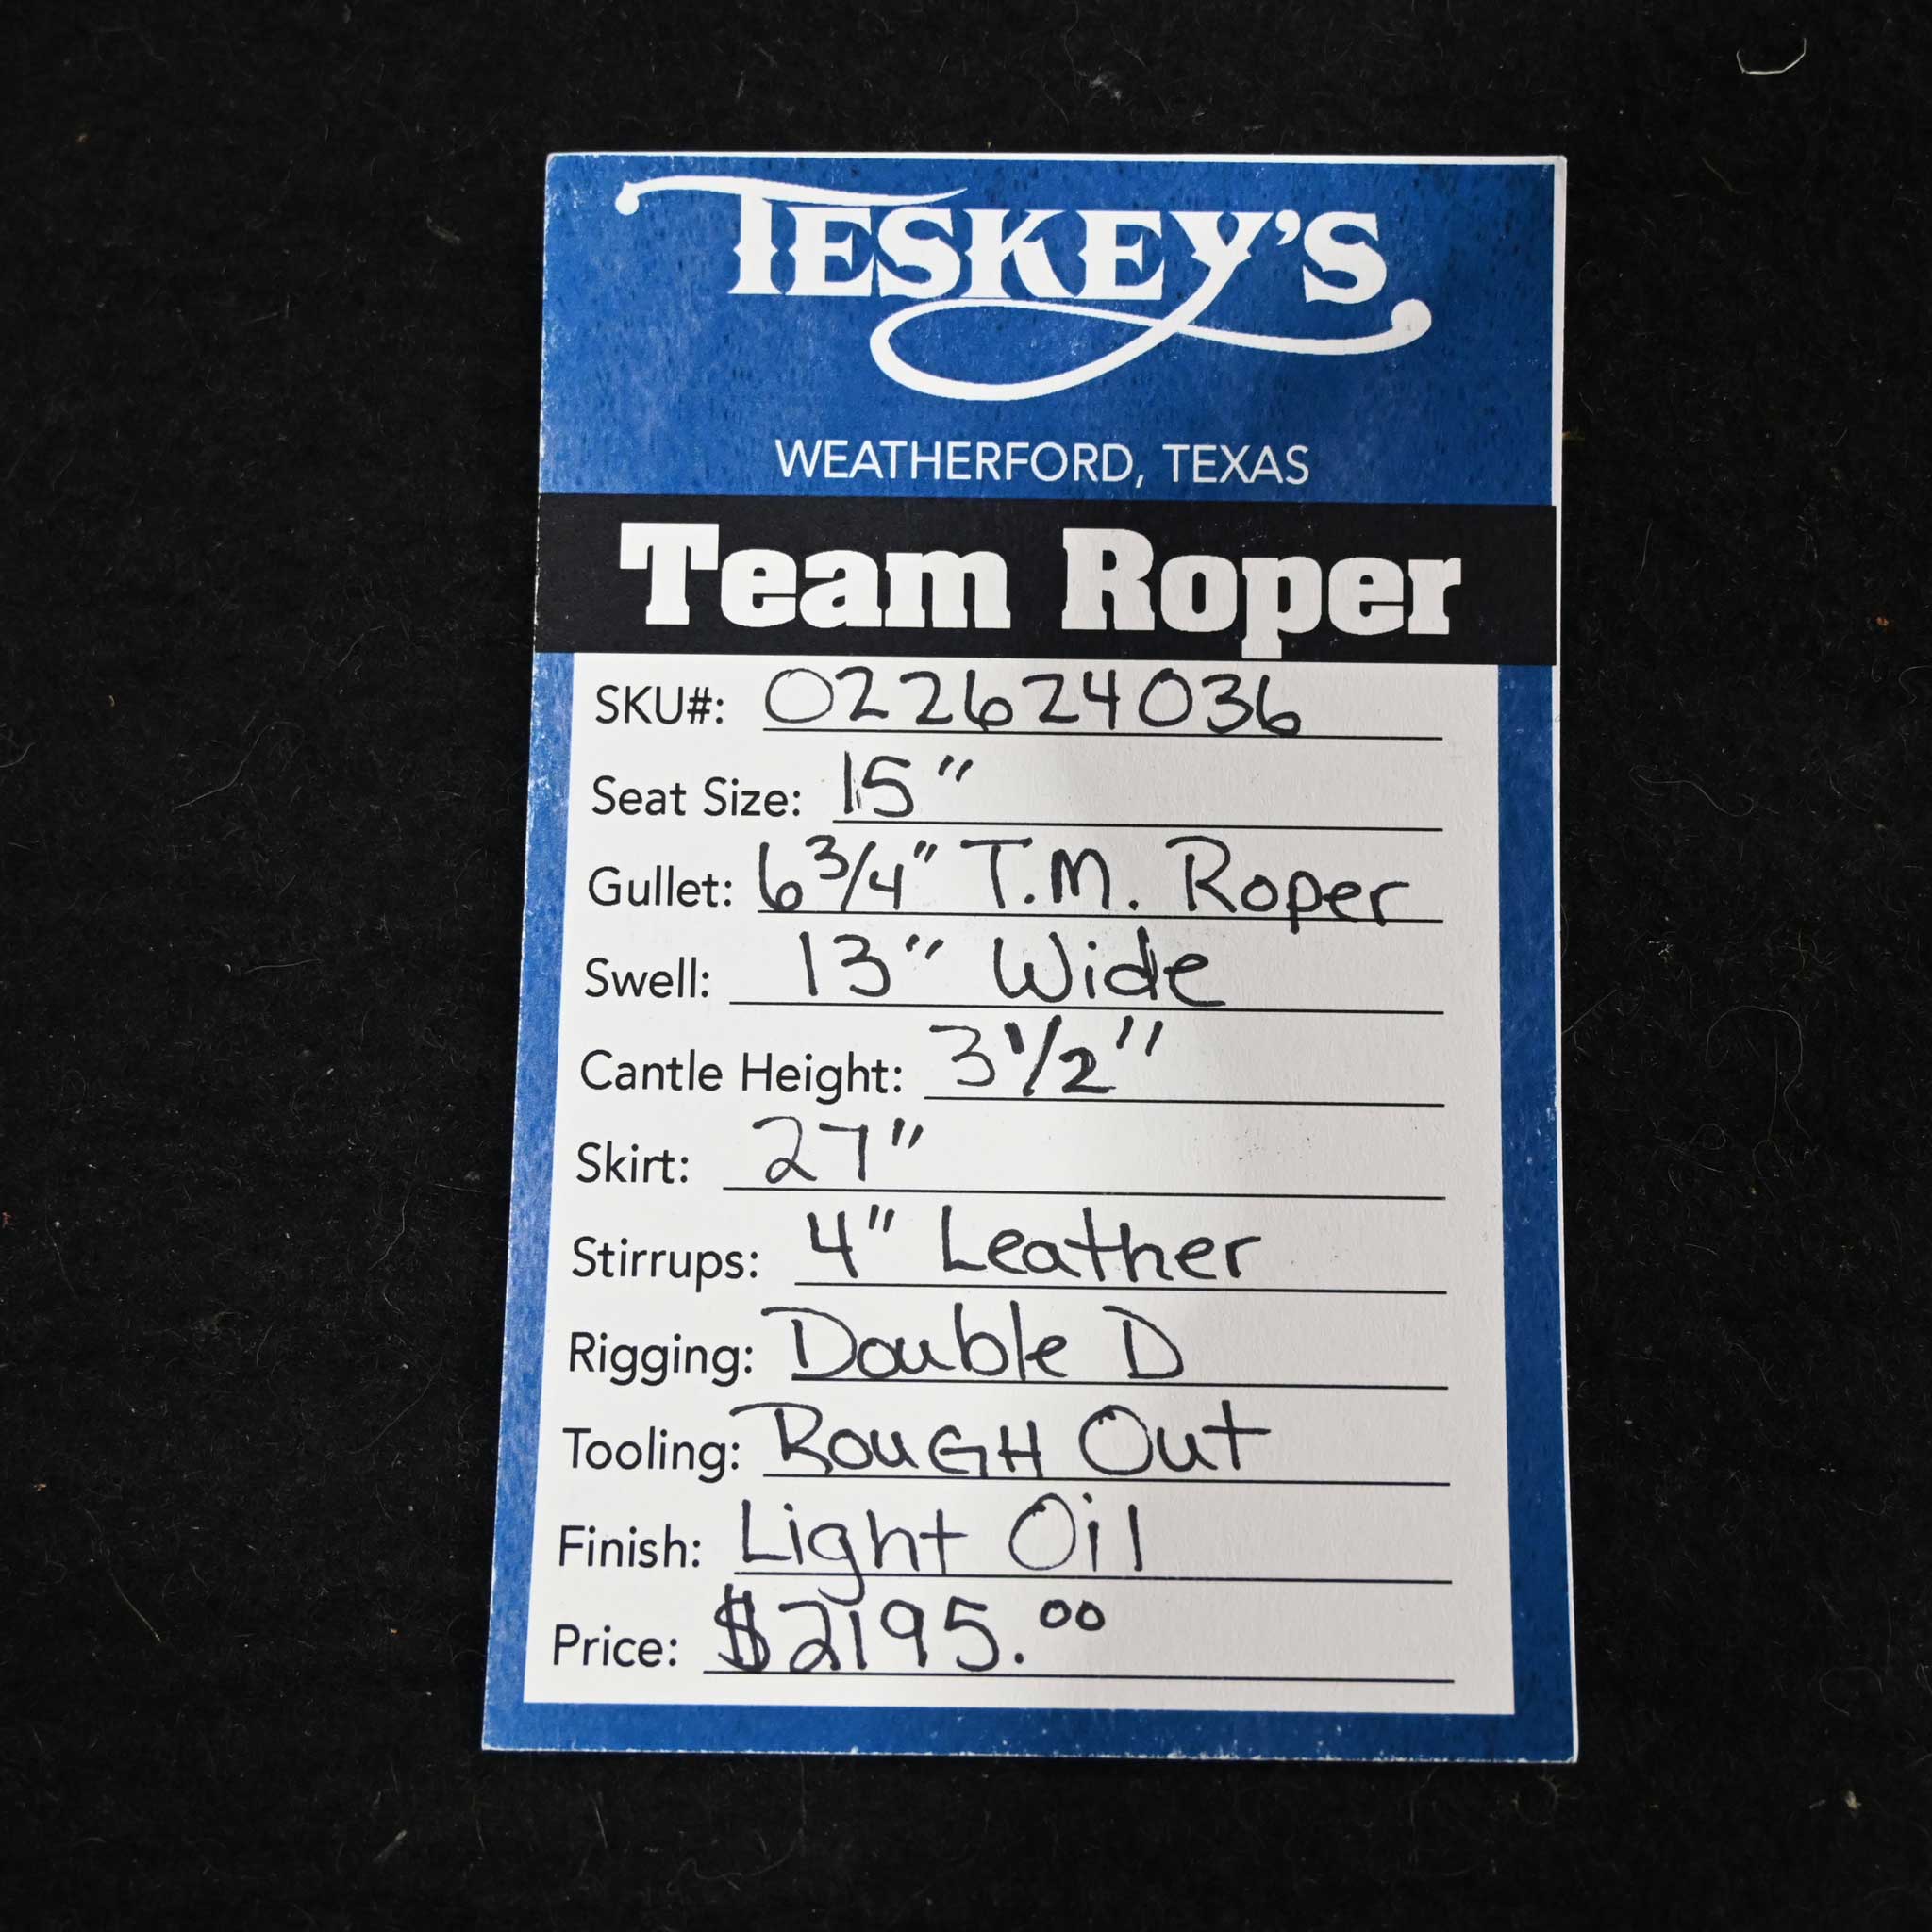 TESKEY'S
WEATHERFORD, TEXAS
Team Roper
SKU#: 022624036
Seat Size: 15"
Gullet: 6 3/4" T.M. Roper
Swell: 13" Wide
Cantle Height: 3 1/2"
Skirt: 27"
Stirrups: 4" Leather
Rigging: Double D
Tooling: RouGH Out
Finish: Light Oil
Price: $2195.00